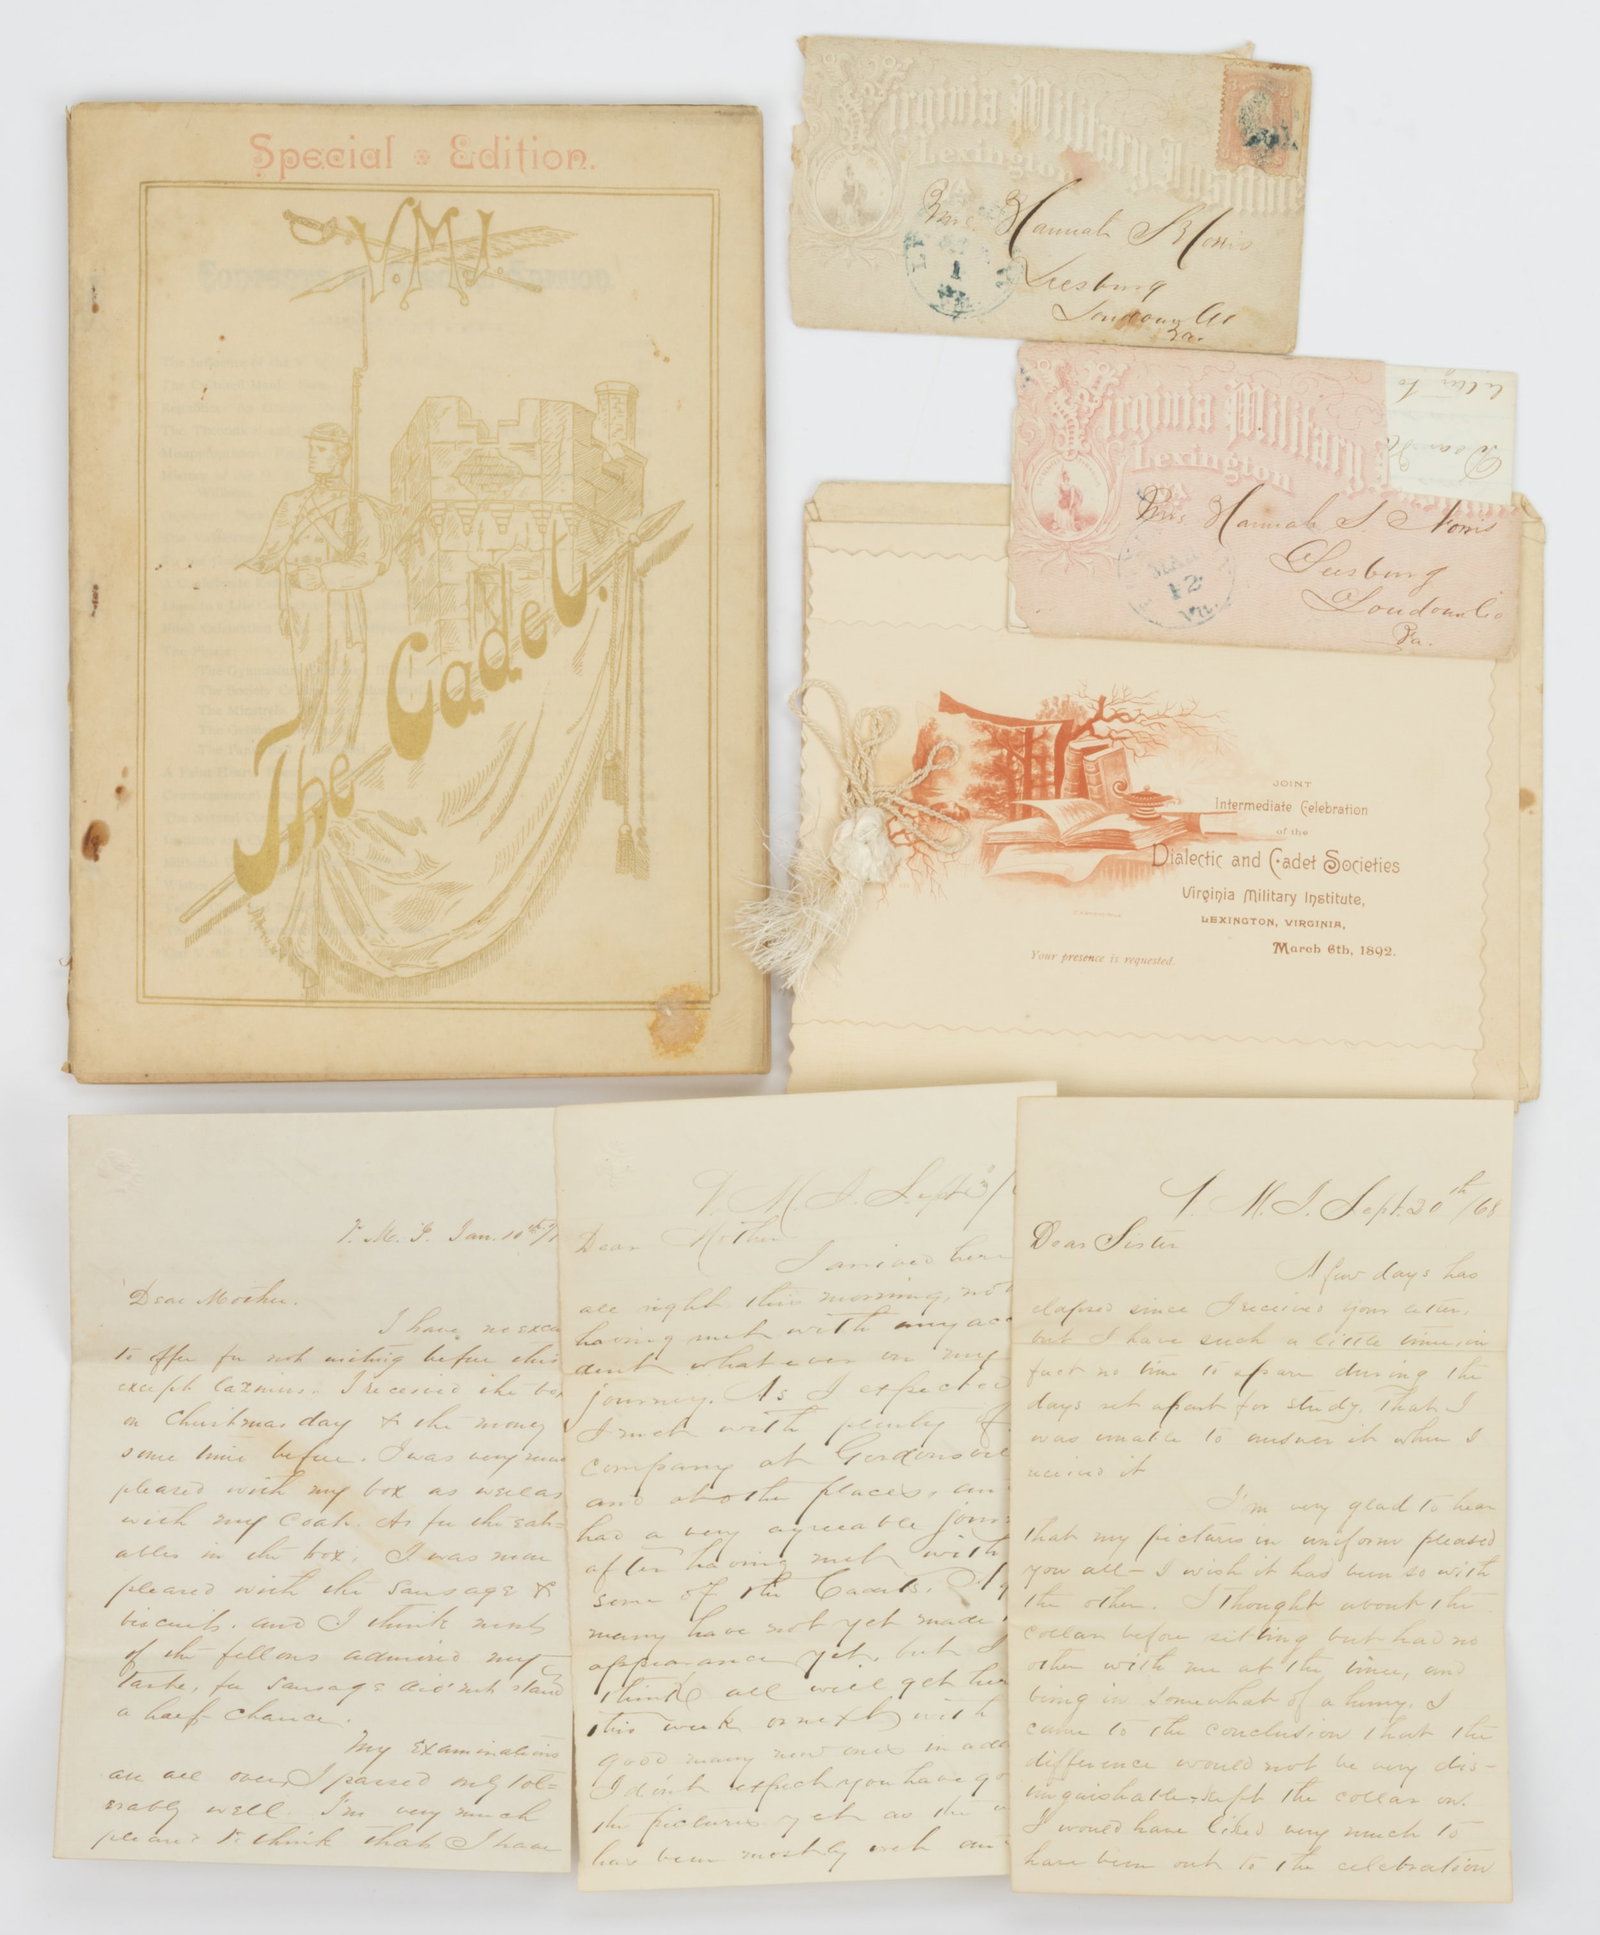 Special Edition.
V.M.I.
The Cadet.
Virginia Military Institute
Lexington
VA
3 3
Mrs. Hannah S Norris
1
Leesburg
Loudoun Co
Va.
Virginia Military Institute
Lexington
VA
Mrs Hannah S. Norris
MAR
12
Va.
Leesburg
Loudoun Co
Va.
JOINT
Intermediate Celebration
of the
Dialectic and Cadet Societies
Virginia Military Institute,
LEXINGTON, VIRGINIA,
March 6th, 1892.
Your presence is requested.
V. M. I. Jan. 10th
Dear Mother.
I have no excu
to offer for not writing before this
except laziness. I received the box
on Christmas day & the money
some time before. I was very muc
pleased with my box as well as
with my coat. As for the eat=
ables in the box, I was more
pleased with the sausage &
biscuits, and I think most
of the fellows admired my
taste, for sausage did not stand
a half chance.
My examinations
are all over, I passed only tol=
erably well. I'm very much
pleased & think that I have
V. M. I. Sept 3
Dear Mother
I arrived here
all right this morning, not
having met with any acc
dent whatever on my
journey. As I expected
I met with plenty of
company at Gordonsvil
and at other places, an
had a very agreeable jour
after having met with
some of the Cadets.
many have not yet made
appearance yet, but I
think all will get her
this week or next with
good many new ones in add
I don't expect you have go
the pictures yet as the
has been mostly wet
V. M. I. Sept. 20th/68
Dear Sister
A few days has
elapsed since I received your letter,
but I have such a little time, in
fact no time to spare during the
days set apart for study. That I
was unable to answer it when I
received it
I'm very glad to hear
that my pictures in uniform pleased
you all — I wish it had been so with
the other. I thought about the
collar before sitting but had no
other with me at the time, and
being in somewhat of a hurry, I
came to the conclusion that the
difference would not be very dis-
tinguishable & kept the collar on.
I would have liked very much to
have been out to the celebration